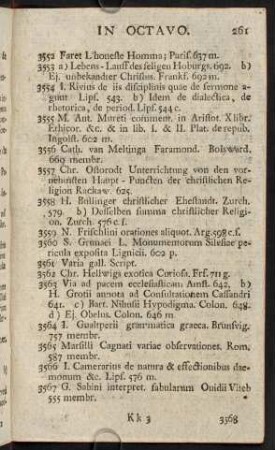 IN OCTAVO. 261
3552 Faret L'honeste Homme; Paris. 637 m.
3553 a) Lebens-Lauff des seligen Hoburgs. 692. b)
Ej. unbekandter Christus. Frankf. 692 m.
3554 I. Rivius de iis disciplinis quae de sermone a-
gunt Lips. 543. b) Idem de dialectica, de
rhetorica, de period. Lips. 544 c.
3555 M. Ant. Mureti comment. in Aristot. X libr.
Ethicor. &c. & in lib. I. & II. Plat. de repub.
Ingolst. 602 m.
3556 Cath. van Meltinga Faramond. Bolswerd.
669 membr.
3557 Chr. Ostorodt Unterrichtung von den vor-
nehmsten Haupt-Puncten der christlichen Re-
ligion Rackaw. 625.
3558 H. Bullinger christlicher Ehestandt. Zurch.
579. b) Desselben summa christlicher Religi-
on. Zurch. 576 c. f.
3559 N. Frischlini orationes aliquot. Arg. 598 c. f.
3560 S. Grunaei L. Monumentorum Silesiae pe-
ricula exposita Lignicii. 602 p.
3561 Varia gall. Script.
3562 Chr. Hellwigs exotica Curiosa. Frf. 711 g.
3563 Via ad pacem ecclesiasticam Amst. 642. b)
H. Grotii annota ad Consultationem Cassandri
641. c) Bart. Nihusii Hypodigma. Colon. 648.
d) Ej. Obelus. Colon. 646 m
3564 I. Gualtperii grammatica graeca. Brunsvig.
757 membr.
3565 Marsilii Cagnati variae observationes. Rom.
587 membr.
3566 I. Camerarius de natura & effectionibus dae-
monum &c. Lips. 576 m.
3567 G. Sabini interpret. fabularum Ouidii Viteb
555 membr.
Kk 3 3368